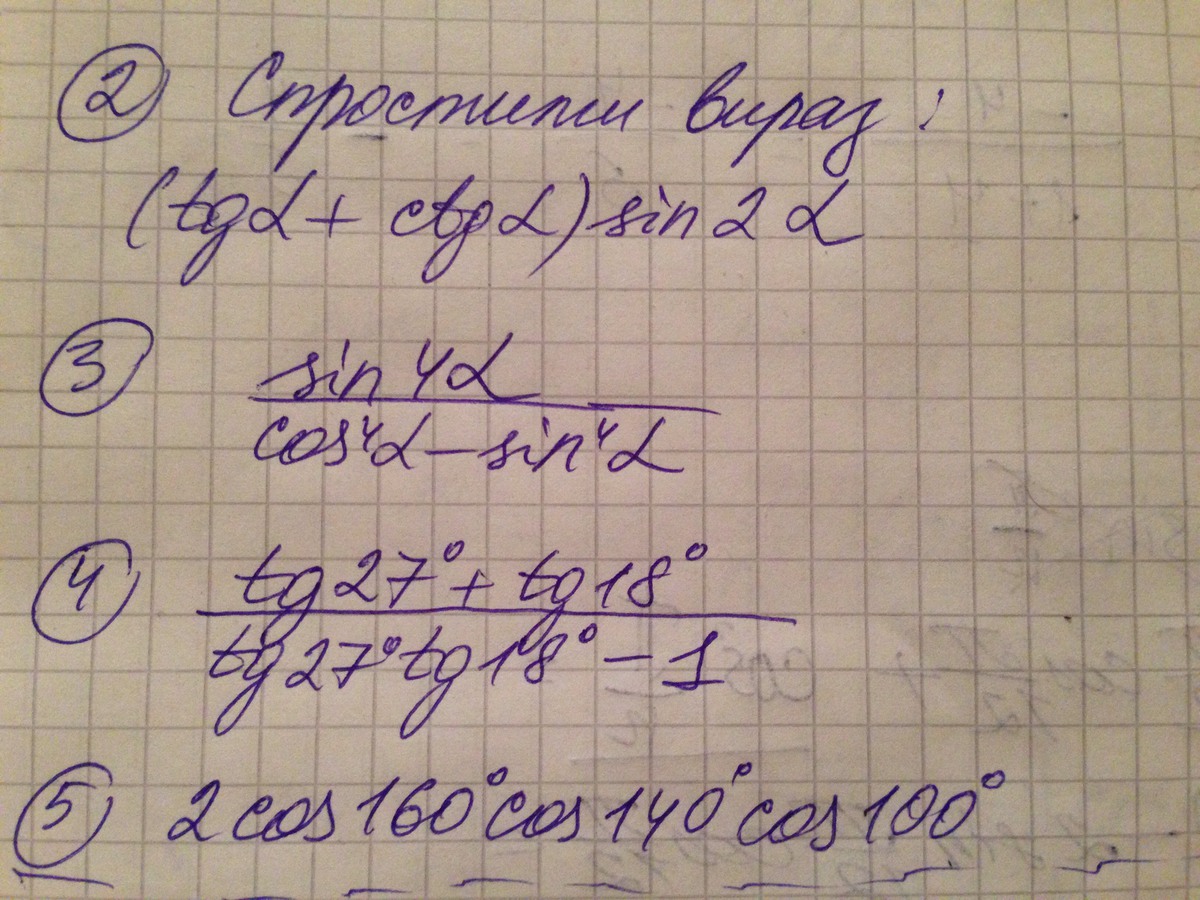 ② Спростити вираз:
(tgα + ctgα) sin 2α
③ sin 4α
cos⁴α − sin⁴α
④ tg 27° + tg 18°
tg 27° tg 18° − 1
⑤ 2 cos 160° cos 140° cos 100°